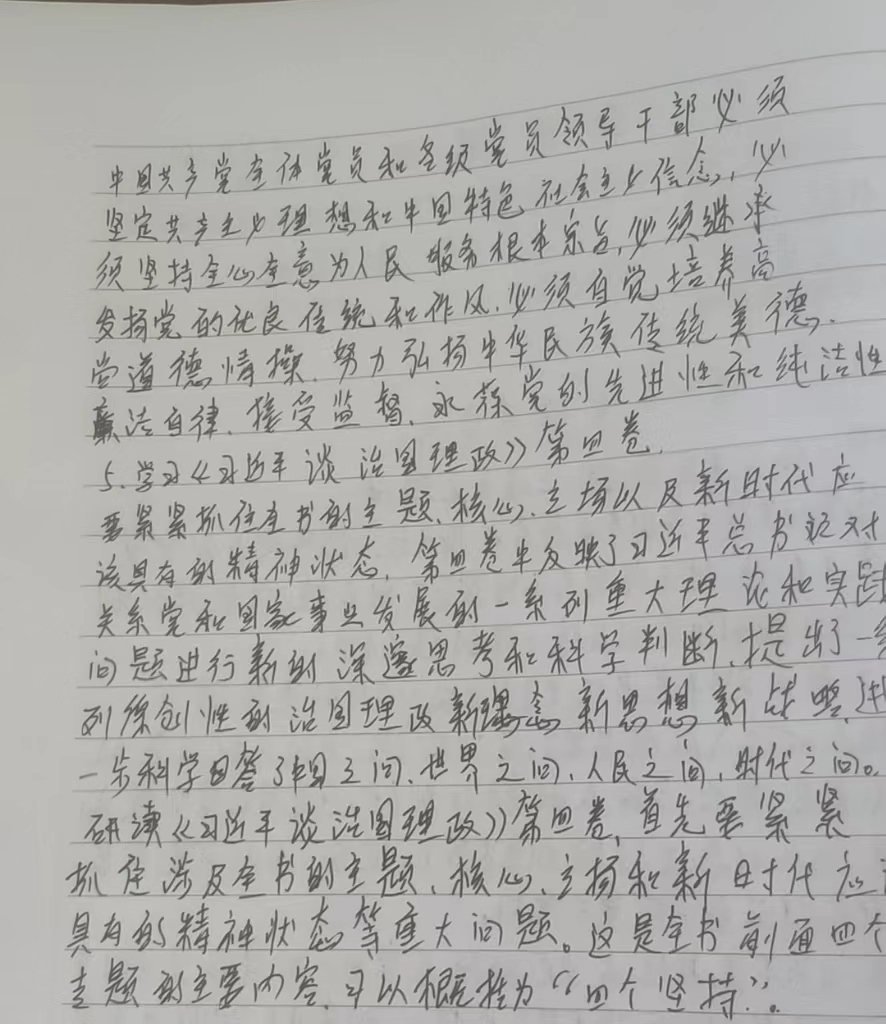 中国共产党全体党员和各级党员领导干部必须
坚定共产主义理想和中国特色社会主义信念,必
须坚持全心全意为人民服务根本宗旨,必须继承
发扬党的优良传统和作风,必须自觉培养高
尚道德情操,努力弘扬中华民族传统美德,
廉洁自律,接受监督,永葆党的先进性和纯洁性
5.学习《习近平谈治国理政》第四卷,
要紧紧抓住全书的主题、核心、立场以及新时代应
该具有的精神状态,第四卷中反映了习近平总书记对
关系党和国家事业发展的一系列重大理论和实践
问题进行新的深邃思考和科学判断,提出了一系
列原创性的治国理政新理念新思想新战略,进
一步科学回答了中国之问、世界之问、人民之问,时代之问。
研读《习近平谈治国理政》第四卷,首先要紧紧
抓住涉及全书的主题、核心、立场和新时代应
具有的精神状态等重大问题。这是全书前面四个
专题的主要内容,可以概括为“四个坚持”。